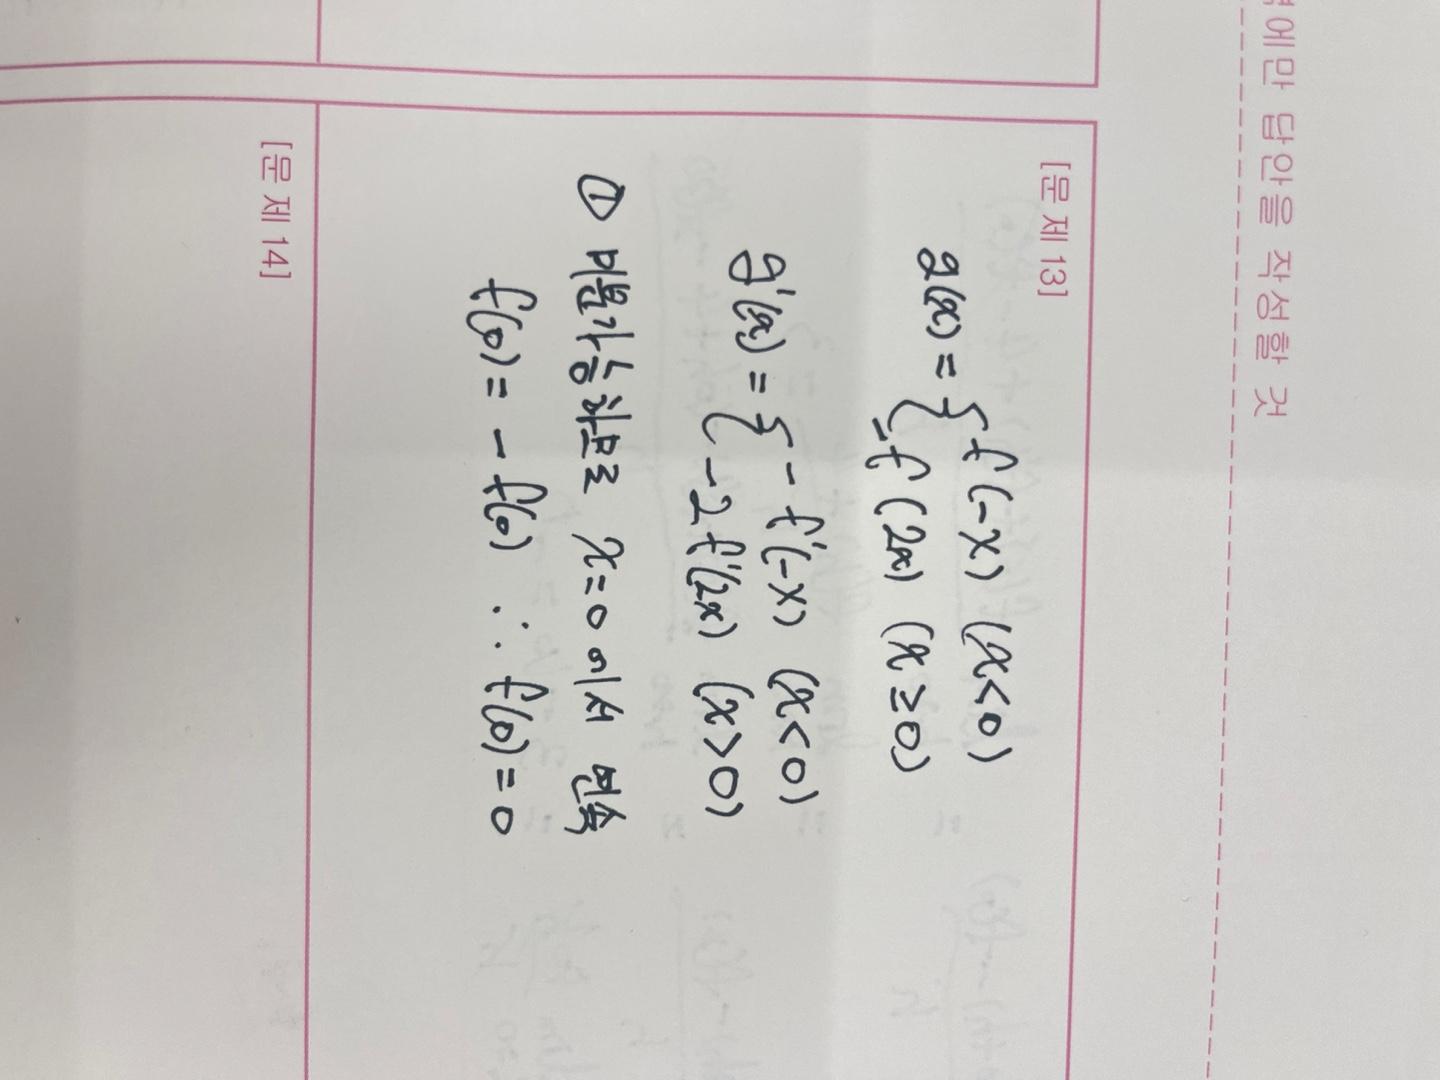 역에만 답안을 작성할 것
[문제 13]
g(x) = { f(-x) (x<0)
-f(2x) (x≥0)
g'(x) = { -f'(-x) (x<0)
-2f'(2x) (x>0)
① 미분가능하므로 x=0에서 연속
f(0) = -f(0) ∴ f(0)=0
[문제 14]